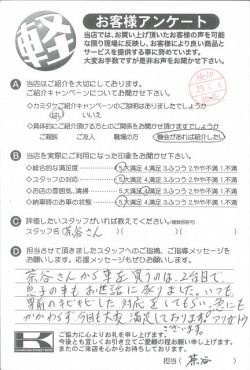 軽
お客様アンケート
当店では、お買い上げ頂いたお客様の声を可能な
限り現場に反映し、お客様により良い商品と
サービスを提供する事に努めています。
大変お手数ですが是非お声をお聞かせ下さい。
A 当店はご紹介を大切にしております。
ご紹介キャンペーンについてお聞かせ下さい。
◇カミタケご紹介キャンペーンのご説明はありましたでしょうか
はい いいえ
◇具体的にご紹介頂ける方とのご関係をお聞かせ頂けますでしょうか
ご親族 ご友人 職場の方 機会があれば紹介したい
B 当店を実際にご利用になった印象をお聞かせ下さい。
◇総合的な満足度 5.大満足 4.満足 3.ふつう 2.やや不満 1.不満
◇スタッフの対応 5.大満足 4.満足 3.ふつう 2.やや不満 1.不満
◇お店の雰囲気、清掃 5.大満足 4.満足 3.ふつう 2.やや不満 1.不満
◇納車時のお車の状態 5.大満足 4.満足 3.ふつう 2.やや不満 1.不満
C 評価したいスタッフがいれば教えてください。(複数回答可)
スタッフ名( 茶谷さん )( )( )
D 担当させて頂きましたスタッフへのご指摘、ご指導メッセージを
お願いします。応援メッセージもぜひお願いします。
茶谷さんから車を買うのは、2台目で、
息子の車もお世話に成りました。いつも
車前のキビキビした対応をしてもらい
かかわらず今回も大変満足しております。アリガトウ
ございます。
K
ご協力に心よりお礼を申し上げます。
今後とも宜しくお引き立てご愛顧の程お願い申し上げます。
またのご来店を心からお待ちしております。
担当( 茶谷 )